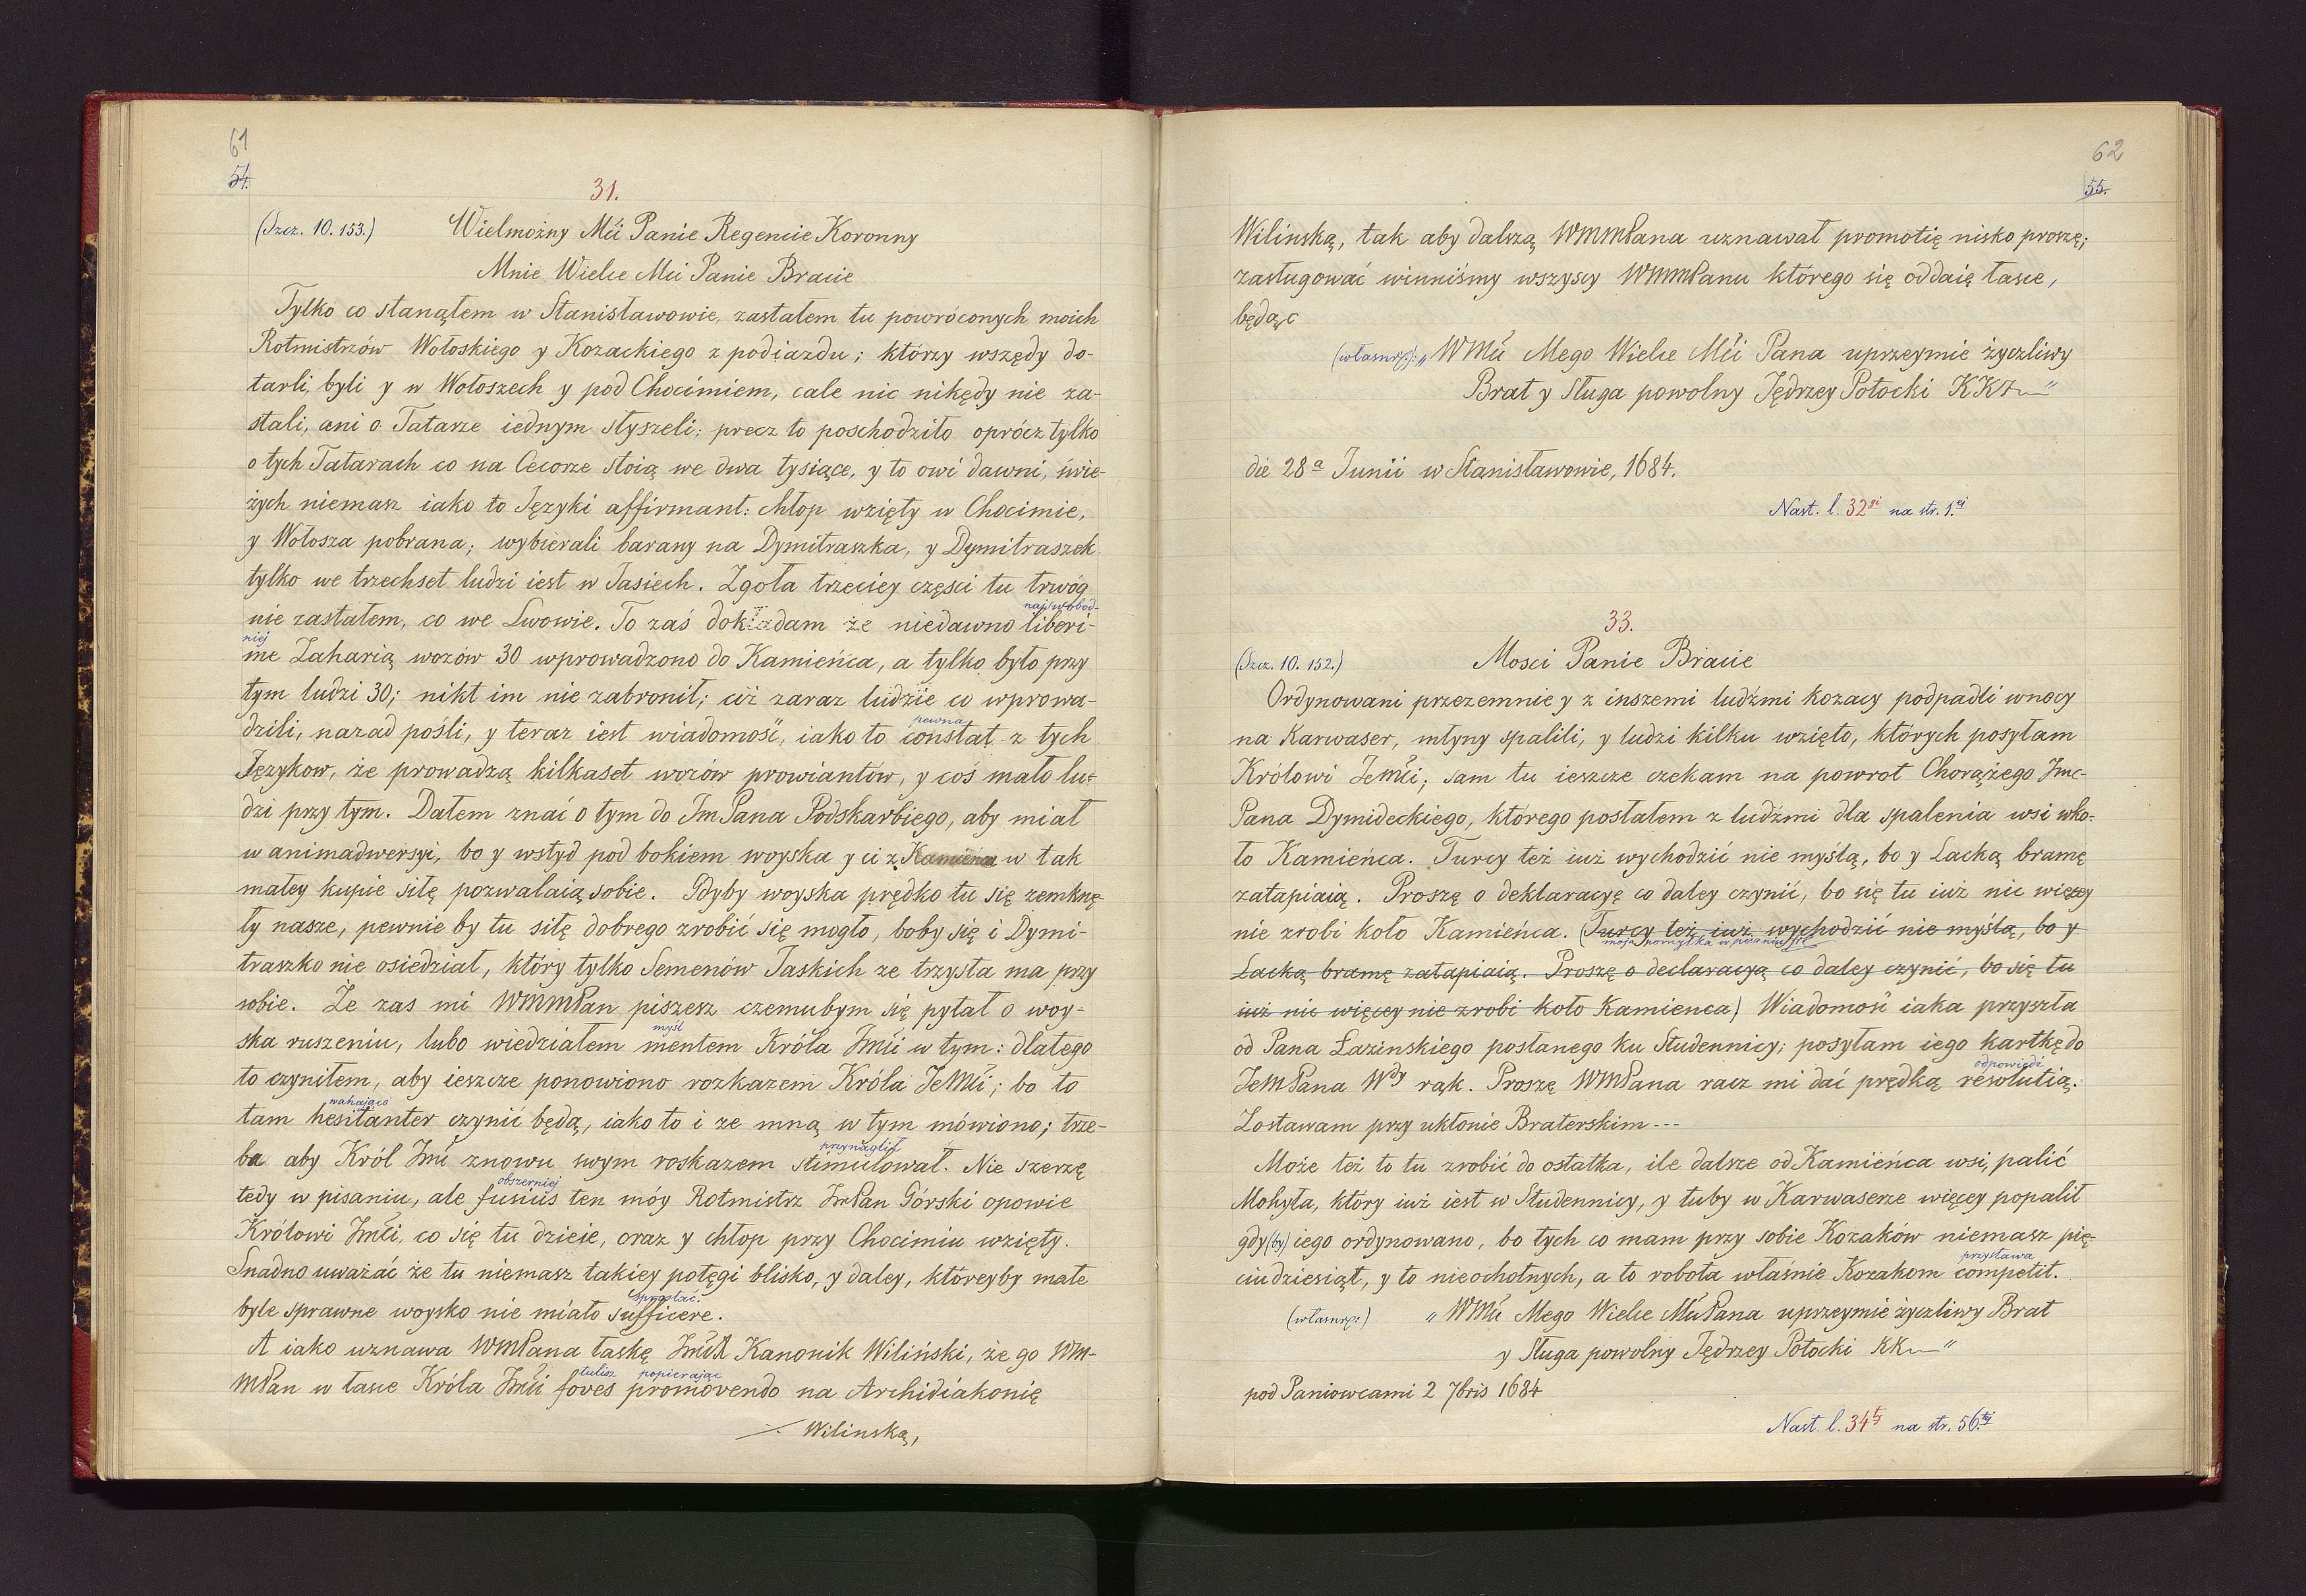 61
54.
31.
(Szcz. 10. 153.) Wielmożny Mći Panie Regencie Koronny
Mnie Wielce Mći Panie Bracie
Tylko co stanąłem w Stanisławowie, zastałem tu powróconych moich
Rotmistrzów Wołoskiego y Kozackiego z podiazdu; którzy wszędy do-
tarli, byli y w Wołoszech y pod Chocimiem, cale nic nikędy nie za-
stali, ani o Tatarze iednym słyszeli; precz to poschodziło oprócz tylko
o tych Tatarach co na Cecorze stoią we dwa tysiące, y to owi dawni, świe-
żych niemasz iako to Języki affirmant: chłop wzięty w Chocimie,
y Wołosza pobrana; wybierali barany na Dymitraszka, y Dymitraszek
tylko we trzechset ludzi iest w Jasiech. Zgoła trzeciey części tu trwóg
nie zastałem, co we Lwowie. To zaś dokładam że niedawno liberi-
najswobod-
niej
me Zaharią wozów 30 wprowadzono do Kamieńca, a tylko było przy
tym ludzi 30; nikt im nie zabronił; ciż zaraz ludzie co wprowa-
dzili, nazad pośli, y teraz iest wiadomość, iako to constat z tych
pewna
Językow, że prowadzą kilkaset wozów prowiantów, y coś mało lu-
dzi przy tym. Dałem znać o tym do Jm Pana Podskarbiego, aby miał
w animadwersyi, bo y wstyd pod bokiem woyska y ci z Kamieńca w tak
małey kupie siłę pozwalaią sobie. Gdyby woyska prędko tu się zemknę-
ły nasze, pewnie by tu siłę dobrego zrobić się mogło, boby się i Dymi-
traszko nie osiedział, który tylko Semenów Jaskich ze trzysta ma przy
sobie. Że zas mi WMMPan piszesz czemubym się pytał o woy-
ska ruszeniu, lubo wiedziałem mentem Króla Jmći w tym: dlatego
myśl
to czyniłem, aby ieszcze ponowiono rozkazem Króla JeMći; bo to
tam hesitanter czynić będą, iako to i ze mną w tym mówiono; trze-
wahająco
ba aby Król Jmć znowu swym roskazem stimulował. Nie szerzę
przynaglił
tedy w pisaniu, ale fusius ten móy Rotmistrz JmPan Górski opowie
obszerniej
Królowi Jmći, co się tu dzieie, oraz y chłop przy Chocimiu wzięty.
Snadno uważać że tu niemasz takiey potęgi blisko, y daley, któreyby małe
byle sprawne woysko nie miało sufficere.
sprostać.
A iako uznawa WMPana łaskę Kanonik Wiliński, że go WM-
MPan w łasce Króla Jmći foves promovendo na Archidiakonię
tulisz popierając
Wilinską,
62
55.
Wilinską, tak aby dalszą WMMPana uznawał promotię nisko proszę;
zasługować winniśmy wszyscy WMMPanu którego się oddaię łasce,
będąc
(własnrp.): „WMći Mego Wielce Mći Pana uprzeymie życzliwy
Brat y Sługa powolny Jędrzey Potocki KK"
die 28a Junii w Stanisławowie, 1684.
Nast. l. 32gi na str. 1.ej
33.
(Szcz. 10. 152.) Mosci Panie Bracie
Ordynowani przezemnie y z inszemi ludźmi kozacy podpadli wnocy
na Karwaser, młyny spalili, y ludzi kilku wzięto, których posyłam
Królowi JeMći; sam tu ieszcze czekam na powrot Chorążego Jmc-
Pana Dymideckiego, którego posłałem z ludźmi dla spalenia wsi wko-
ło Kamieńca. Turcy też iuż wychodzić nie myślą, bo y Lacką bramę
zatapiaią. Proszę o deklaracyę co daley czynić, bo się tu iuż nic więcey
nie zrobi koło Kamieńca. (Turcy też iuż wychodzić nie myślą, bo y
moja pomyłka w pisaniu
Lacką bramę zatapiaią. Proszę o declaracyą co daley czynić, bo się tu
iuż nic więcey nie zrobi koło Kamienca) Wiadomość iaka przyszła
od Pana Łazinskiego posłanego ku Studennicy; posyłam iego kartkę do
JeMPana Wdy rąk. Proszę WMPana racz mi dać prędką resolutią.
odpowiedź
Zostawam przy ukłonie Braterskim---
Może też to tu zrobić do ostatka, ile dalsze od Kamieńca wsi, palić
Mohyła, który iuż iest w Studennicy, y tuby w Karwaserze więcey popalił
gdy(by) iego ordynowano, bo tych co mam przy sobie Kozaków niemasz pię-
ciudziesiąt, y to nieochotnych, a to robota właśnie Kozakom competit.
przystawa
(własnrp.) „WMći Mego Wielce MćiPana uprzeymie życzliwy Brat
y Sługa powolny Jędrzey Potocki KK"
pod Paniowcami 2 7bris 1684
Nast. l. 34ty na str. 56.tej